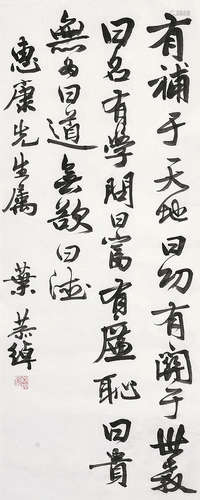 有補于天地曰功有關于世教
曰名有学問曰富有廉恥曰貴
無為曰道無欲曰德
惠康先生属 葉恭綽